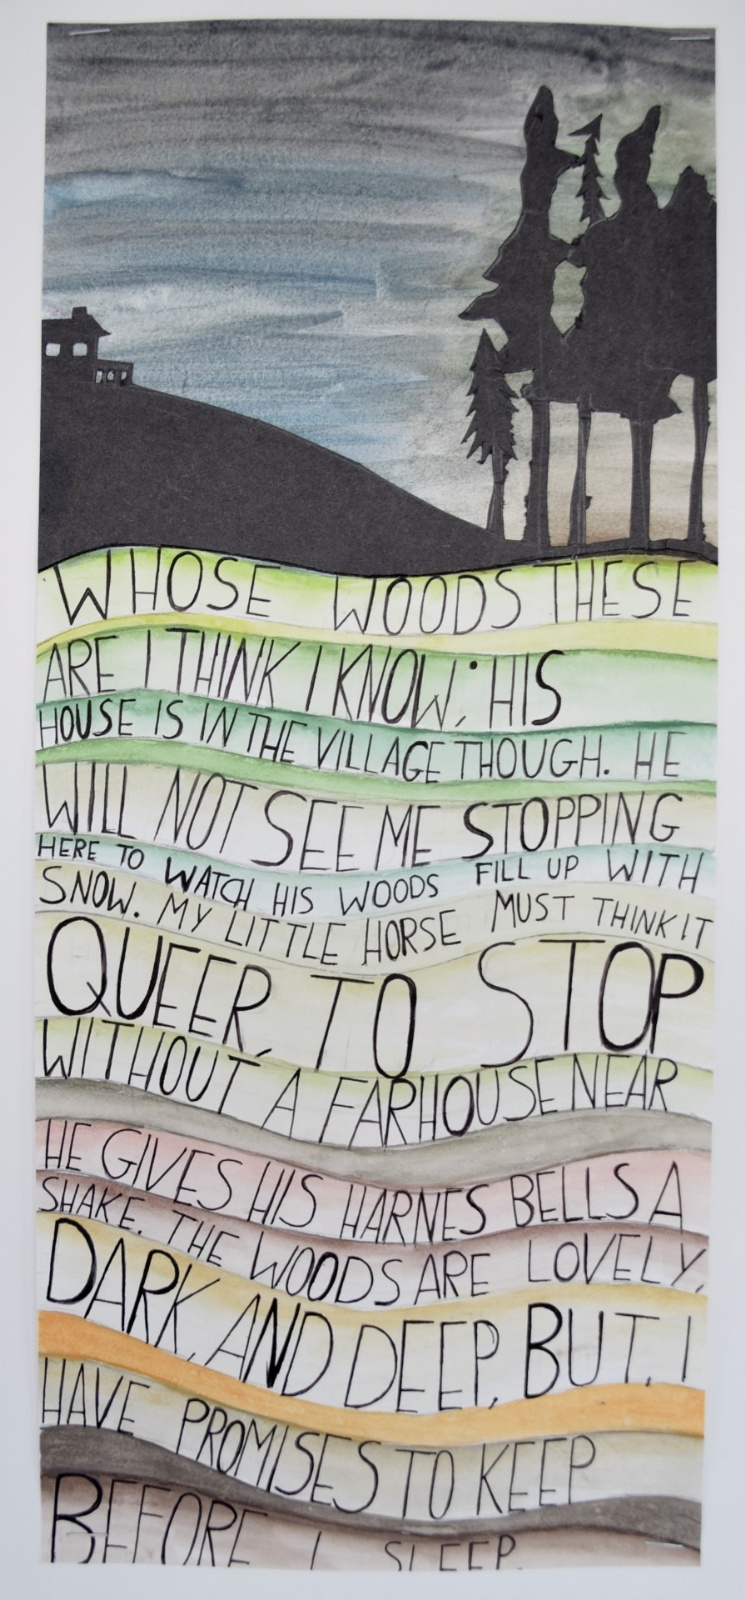 WHOSE WOODS THESE
ARE I THINK I KNOW; HIS
HOUSE IS IN THE VILLAGE THOUGH. HE
WILL NOT SEE ME STOPPING
HERE TO WATCH HIS WOODS FILL UP WITH
SNOW. MY LITTLE HORSE MUST THINK IT
QUEER, TO STOP
WITHOUT A FARHOUSE NEAR
HE GIVES HIS HARNES BELLS A
SHAKE. THE WOODS ARE LOVELY,
DARK, AND DEEP, BUT, I
HAVE PROMISES TO KEEP
BEFORE I SLEEP.